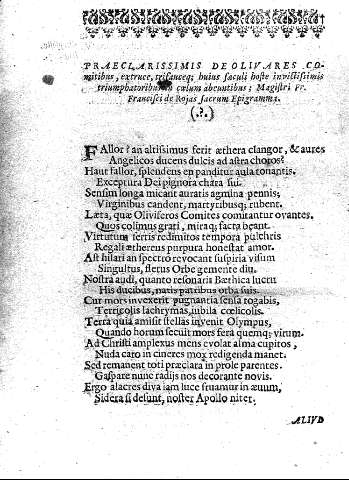 PRAECLARISSIMIS DE OLIVARES CO-
mitibus, extruce, trifauceq; huius saeculi hoste invictissimis
triumphatoribus in coelum abeuntibus; Magistri Fr.
Francisci de Rojas sacrum Epigramma.
FAllor? an altissimus ferit aethera clangor, & aures
Angelicos ducens dulcis ad astra choros?
Haut fallor, splendens en panditur aula tonantis.
Exceptura Dei pignora chara sui.
Sensim longa micant auratis agmina pennis;
Virginibus candent, martyribusq; rubent.
Laeta, quae Oliviferos Comites comitantur ovantes.
Quos colimus grati, miraq; facta beant.
Virtutum sertis redimitos tempora pulchris
Regali aethereus purpura honestat amor.
Ast hilari an spectro revocant suspiria visum
Singultus, fletus Orbe gemente diu.
Nostra audi, quanto resonarit Baethica luctu
His ducibus, natis patribus orba suis.
Cur mors invexerit pugnantia sensa rogabis,
Terricolis lachrymas, iubila coelicolis.
Terra quia amisit stellas invenit Olympus,
Quando horum secuit mors fera quenq; virum.
Ad Christi amplexus mens evolat alma cupitos,
Nuda caro in cineres mox redigenda manet.
Sed remanent toti praeclara in prole parentes.
Gaspare nunc radijs nos decorante novis.
Ergo alacres diva iam luce fruamur in aevum,
Sidera si desunt, noster Apollo nitet.
ALIVD